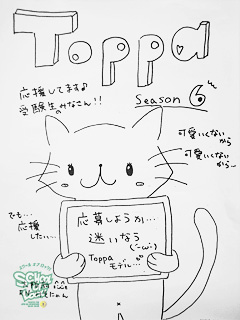 Toppa
応援してます♪
受験生のみなさん!!
Season 6
可愛いくないから
可愛いくないから〜
でも…
応援
したい…
応募しようか…
迷いなう
(-ω-)
Toppa
モデル…